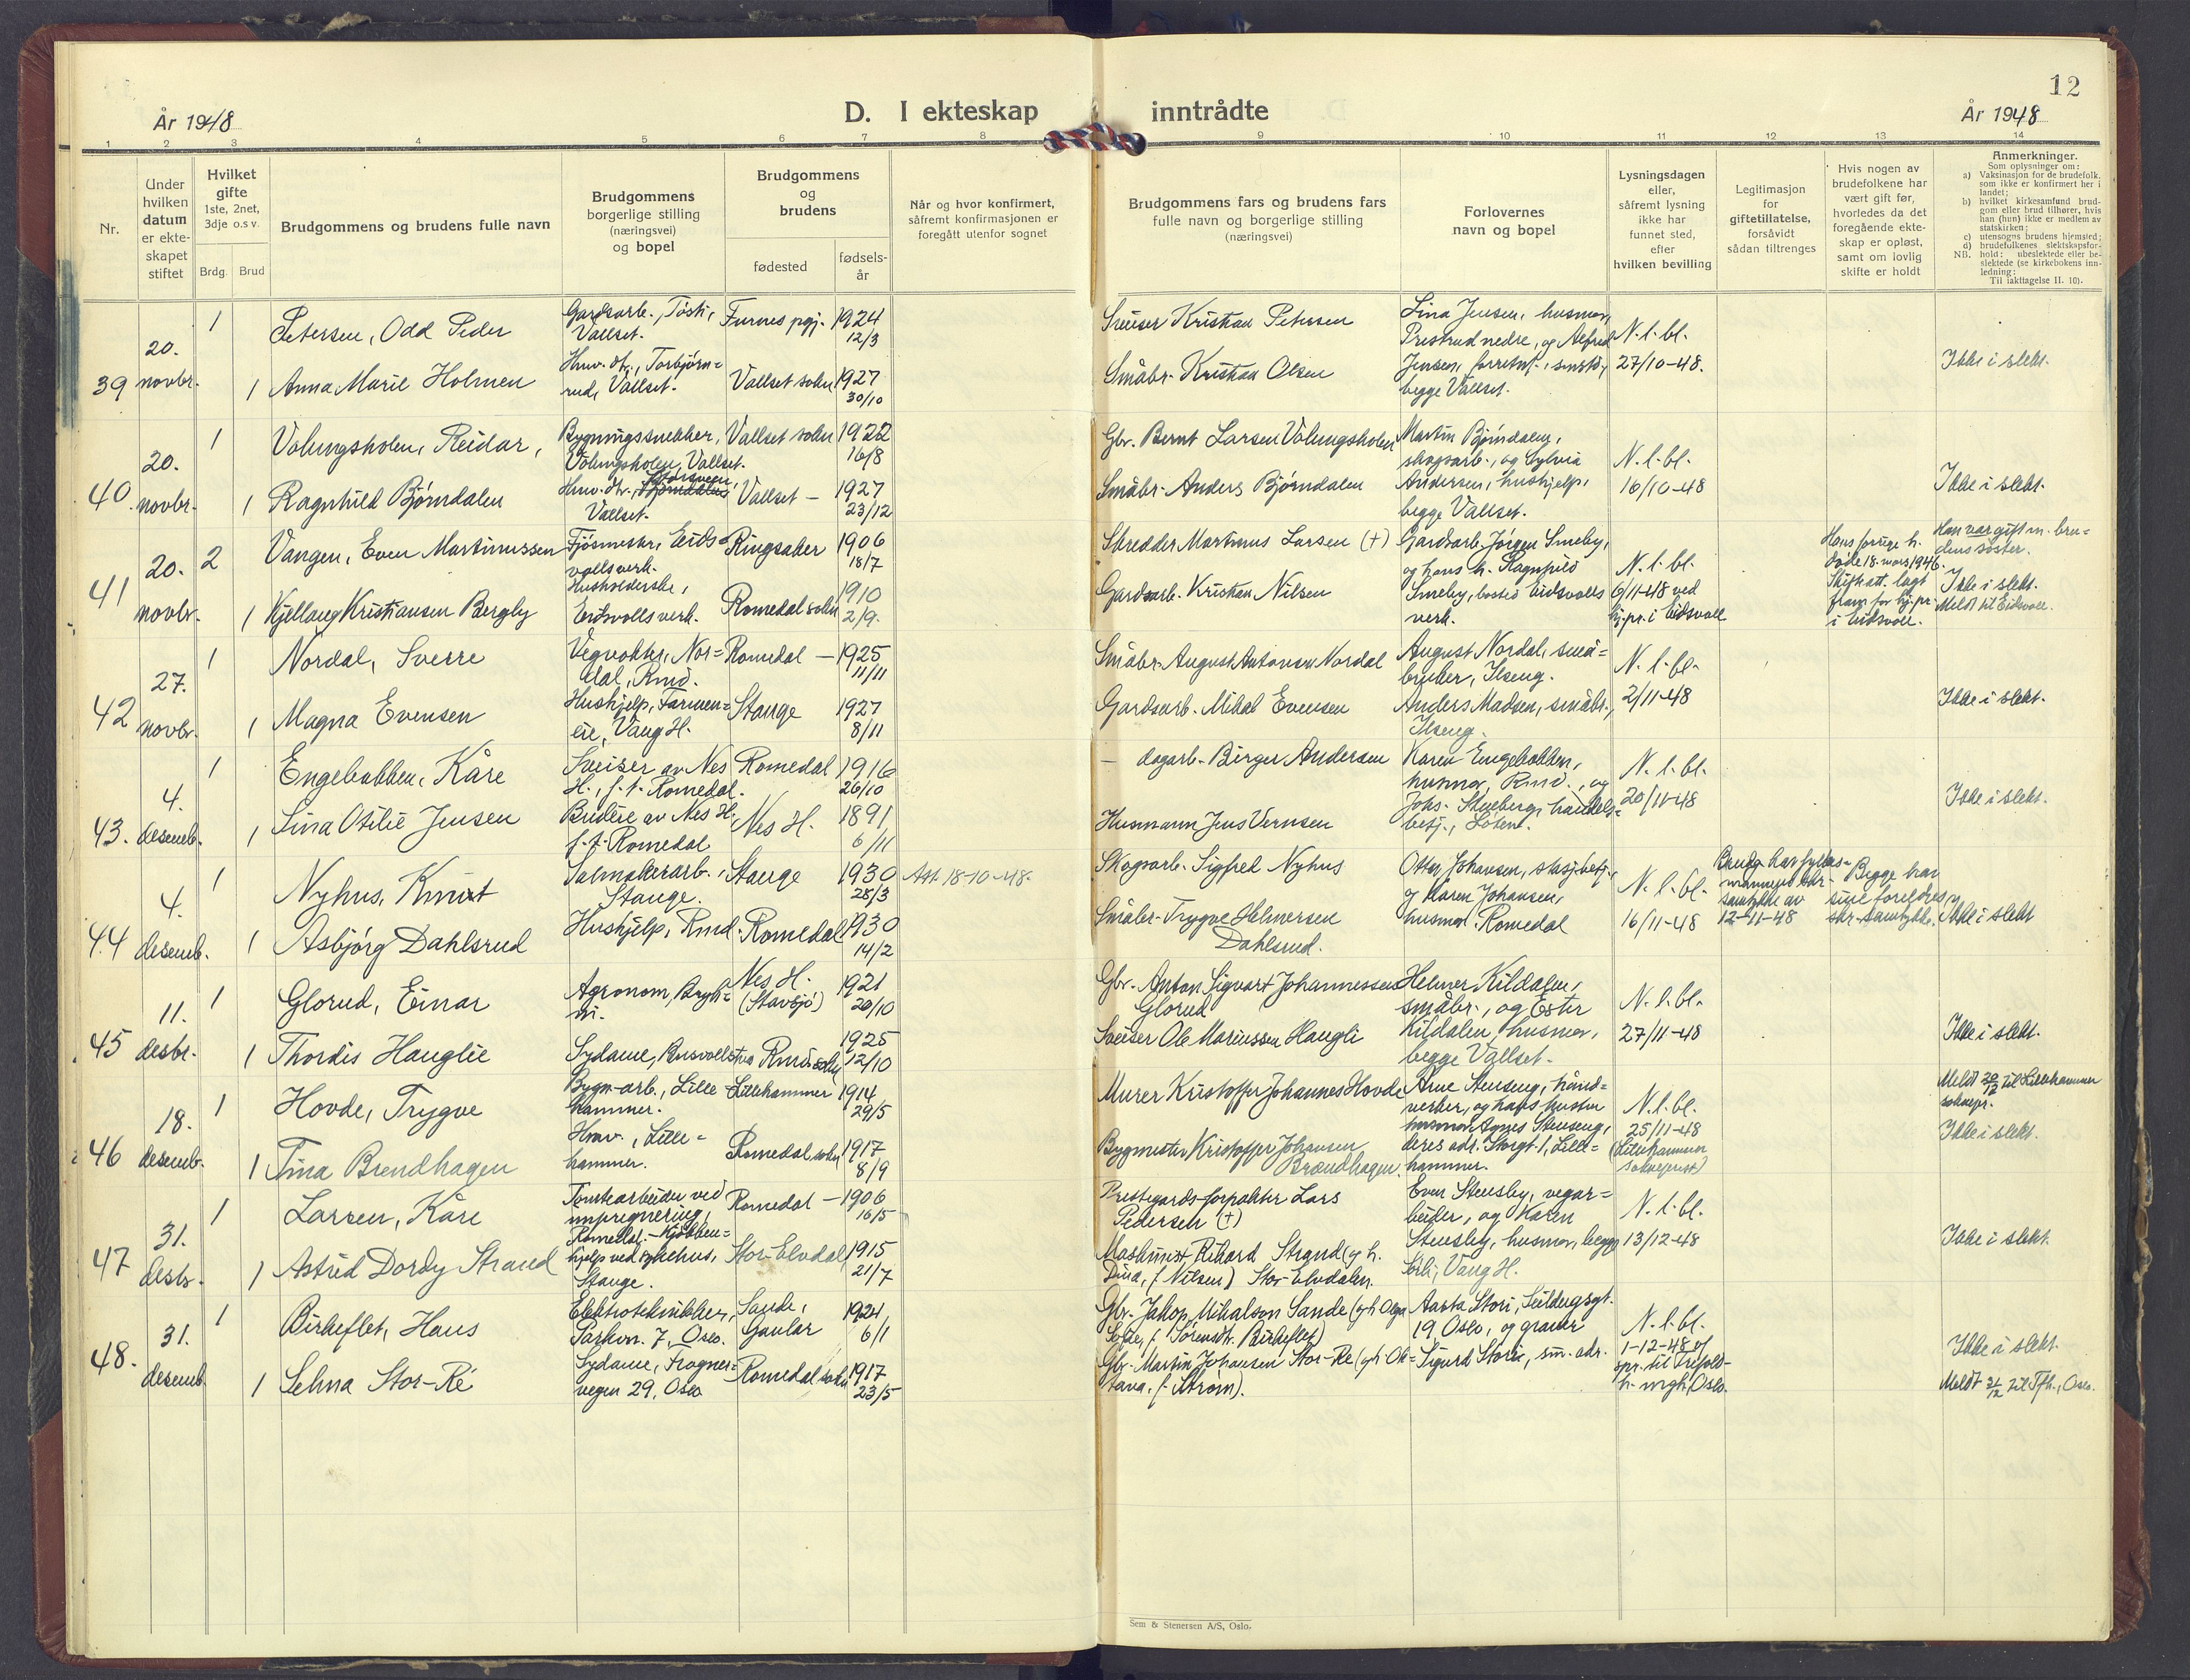 12
År 1948
D. I ekteskap inntrådte
År 1948
1 2 3 4 5 6 7 8 9 10 11 12 13 14
Nr.
Under
hvilken
datum
er ekte-
skapet
stiftet
Hvilket
gifte
1ste, 2net,
3dje o.s.v.
Brdg. Brud
Brudgommens og brudens fulle navn
Brudgommens
borgerlige stilling
(næringsvei)
og bopel
Brudgommens
og
brudens
fødested
fødsels-
år
Når og hvor konfirmert,
såfremt konfirmasjonen er
foregått utenfor sognet
Brudgommens fars og brudens fars
fulle navn og borgerlige stilling
(næringsvei)
Forlovernes
navn og bopel
Lysningsdagen
eller,
såfremt lysning
ikke har
funnet sted,
efter
hvilken bevilling
Legitimasjon
for
giftetillatelse,
forsåvidt
sådan tiltrenges
Hvis nogen av
brudefolkene har
vært gift før,
hvorledes da det
foregående ekte-
skap er opløst,
samt om lovlig
skifte er holdt
Anmerkninger.
Som oplysninger om:
a) Vaksinasjon for de brudefolk,
som ikke er konfirmert her i
landet;
b) hvilket kirkesamfund brud-
gom eller brud tilhører, hvis
han (hun) ikke er medlem av
statskirken;
c) utensogns brudens hjemsted;
d) brudefolkenes slektskapsfor-
hold: ubeslektede eller be-
slektede (se kirkebokens inn-
ledning:
NB.
Til iakttagelse II. 10).
39
20.
novbr.
1
Petersen, Odd Peder
Gardsarb., Tosti,
Vallset.
Furnes pgj.
1924
12/3
Sveiser Kristian Petersen
Lina Jensen, husmor,
Prestrud nedre, og Alfred
Jensen, forretnf., smsts,
begge Vallset.
N. l. bl.
27/10-48.
Ikke i slekt.
1
Anna Marie Holmen
Hmv. dtr., Torbjørn=
rud, Vallset.
Vallset sokn
1927
30/10
Småbr. Kristian Olsen
40
20.
novbr.
1
Volungsholen, Reidar,
Bygningssnekker,
Volungsholen, Vallset.
Vallset sokn
1922
16/8
Gbr. Bernt Larsen Volungsholen
Martin Bjørndalen,
skogsarb., og Sylvia
Andersen, hushjelp,
begge Vallset.
N. l. bl.
16/10-48
Ikke i slekt.
1
Ragnhild Bjørndalen
Hmv. dtr., Bjørndalen
Vallset.
Vallset —
1927
23/12
Småbr. Anders Bjørndalen
41
20.
novbr.
2
Vangen, Even Martinussen
Fjøsmester, Eids=
vollsverk.
Ringsaker
1906
18/7
Skredder Martinus Larsen (+)
Gardsarb. Jørgen Smeby,
og hans h. Ragnhild
Smeby, bosted Eidsvolls
verk.
N. l. bl.
6/11-48 ved
spr. i Eidsvoll
Hans forrige h.
døde 18. mars 1946.
Skifteatt. lagt
fram for spr.
i Eidsvoll.
Han var gift m. bru=
dens søster.
Ikke i slekt.
Meldt til Eidsvoll.
1
Kjellaug Kristiansen Bergby
Husholderske,
Eidsvolls verk.
Romedal sokn
1910
2/9.
Gardsarb. Kristian Nilsen
42
27.
novbr.
1
Nordal, Sverre
Vegvokter, Nor=
dal, Rmd.
Romedal —
1925
11/11
Småbr. August Antonsen Nordal
August Nordal, små=
bruker, Ilseng.
Anders Madsen, småbr.,
Ilseng.
N. l. bl.
2/11-48
Ikke i slekt.
1
Magna Evensen
Hushjelp, Farmen=
eie, Vang H.
Stange
1927
8/11
Gardsarb. Mikal Evensen
43.
4.
desemb.
1
Engebakken, Kåre
Sveiser av Nes
H., f. t. Romedal.
Romedal
1916
26/10
— dagarb. Birger Andersen
Karen Engebakken,
husmor, Rmd., og
Johs. Stueberg, handels=
betj., Løten.
N. l. bl.
20/11-48
Ikke i slekt.
1
Lina Otilie Jensen
Budeie av Nes H.
f. t. Romedal
Nes H.
1891
6/11
Husmann Jens Vernsen
44
4.
desemb.
1
Nyhus, Knut
Salmakerarb.,
Stange.
Stange
1930
28/3
Att. 18-10-48.
Skogsarb. Sigfred Nyhus
Otto Johansen, stasj.betj.,
og Karen Johansen,
husmor. Romedal
N. l. bl.
16/11-48
Brudg. har fylkes=
mannens
samtykke av
12-11-48
Begge har
sine foreldres
skr. samtykke.
Ikke i slekt
1
Asbjørg Dahlsrud
Hushjelp, Rmd.
Romedal
1930
14/2
Småbr. Trygve Helmersen
Dahlsrud.
45
11.
desbr.
1
Glorud, Einar
Agronom,
Nes H.
(Stavsjø)
1921
20/10
Gbr. Anton Sigvart Johannessen
Glorud
Helmer Kildalen,
småbr., og Ester
Kildalen, husmor,
begge Vallset.
N. l. bl.
27/11-48
Ikke i slekt.
1
Thordis Hauglie
Sydame,
Rmd sokn
1925
12/10
Sveiser Ole Mariussen Haugli
46
18.
desemb.
1
Hovde, Trygve
Bygn.arb., Lille=
hammer.
Lillehammer
1914
29/5
Murer Kristoffer Johannes Hovde
Arne Stenseng, hånd=
verker, og hans hustru
husmor Agnes Stenseng,
deres adr. Storgt. 1, Lille=
hammer.
N. l. bl.
25/11-48
(Lillehammer
sokneprest)
Meldt 20/12 til Lillehammer
soknepr.
Ikke i slekt.
1
Tina Brendhagen
Hmv., Lille=
hammer.
Romedal sokn
1917
8/9
Bygmester Kristoffer Johansen
Brændhagen.
47
31.
desbr.
1
Larsen, Kåre
Tomtearbeider ved
impregnering,
Romedal.
Romedal —
1906
16/5
Prestegards-forpakter Lars
Pedersen (+)
Even Stensby, vegar=
beider, og Karen
Stensby, husmor, begge
Vang H.
N. l. bl.
13/12-48
Ikke i slekt.
1
Astrid Dordy Strand
Kjøkken=
hjelp ved sykehus,
Stange.
Stor-Elvdal
1915
21/7
Maskinist Rikard Strand (g h.
Dina, f. Nilsen) Stor-Elvdalen.
48.
31.
desemb.
1
Birkeflet, Hans
Elektrotekniker,
Parkvn. 7, Oslo.
Sande,
Gaular
1924
6/1
Gbr. Jakop Mikalson Sande (g h Olga
Sofie, f. Sørensdtr. Birkeflet)
Aasta Stori, Seildugsgt.
19, Oslo, og gravør
Sigurd Storie, sm. adr.
N. l. bl.
1-12-48 af
spr. til Trefold-
h. mgh. Oslo.
Ikke i slekt.
Meldt 31/12 til Tfh., Oslo.
1
Selma Stor-Re
Sydame, Frogner=
vegen 29, Oslo
Romedal sokn
1917
23/5
Gbr. Martin Johansen Stor-Re (g h Ok=
tava, f. Strøm).
Sem & Stenersen A/S, Oslo.